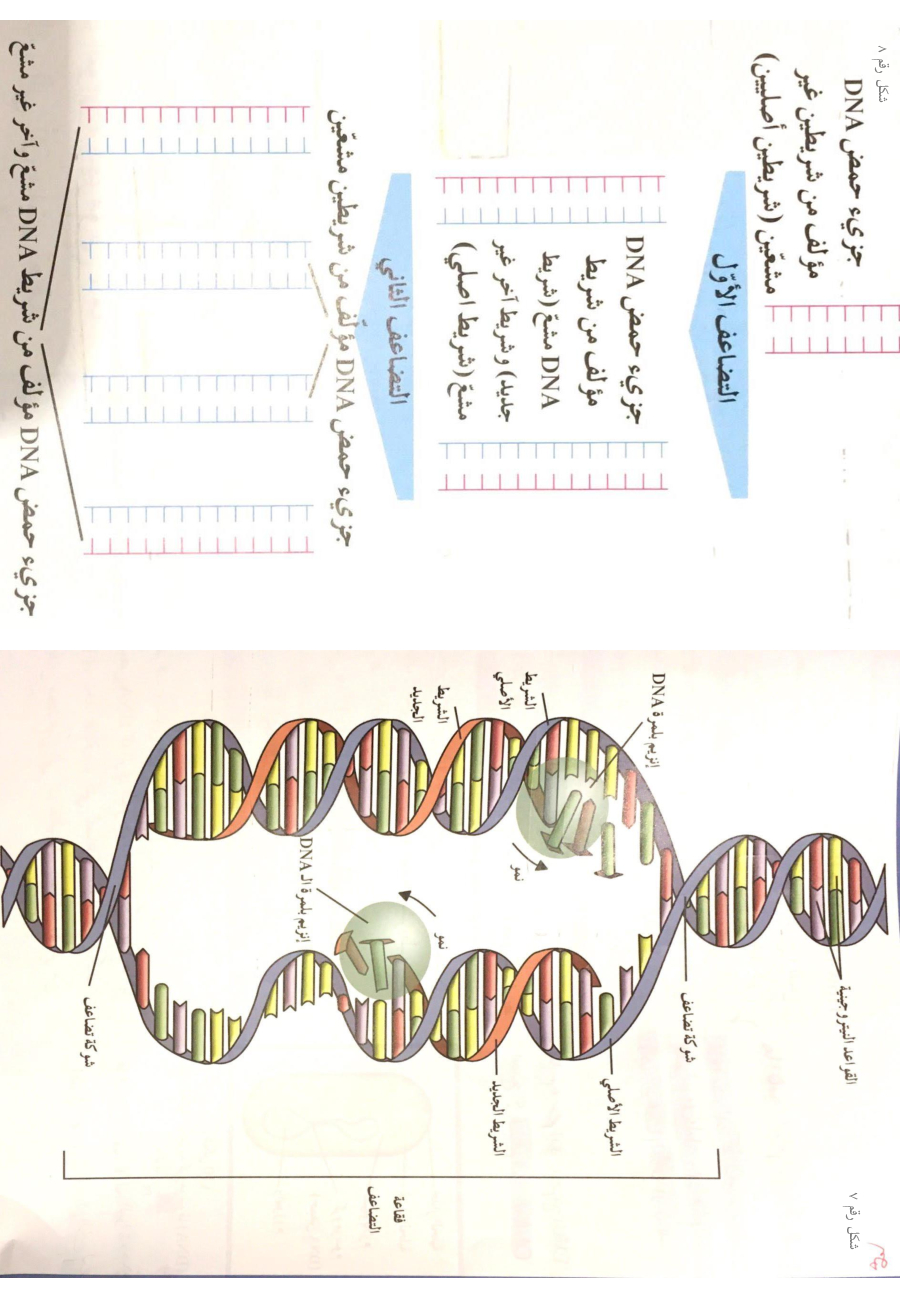 شكل رقم ٨
جزيء حمض DNA
مؤلف من شريطين غير
مشعّين (شريطين أصليين)
التضاعف الأوّل
جزيء حمض DNA
مؤلف من شريط
DNA مشعّ (شريط
جديد) وشريط آخر غير
مشعّ (شريط اصلي)
التضاعف الثاني
جزيء حمض DNA مؤلّف من شريطين مشعّين
جزيء حمض DNA مؤلف من شريط DNA مشعّ وآخر غير مشعّ
شكل رقم ٧
القواعد النيتروجينية
شوكة تضاعف
إنزيم بلمرة DNA
الشريط
الأصلي
الشريط
الجديد
نمو
الشريط الأصلي
الشريط الجديد
نمو
إنزيم بلمرة الـ DNA
شوكة تضاعف
فقاعة
التضاعف